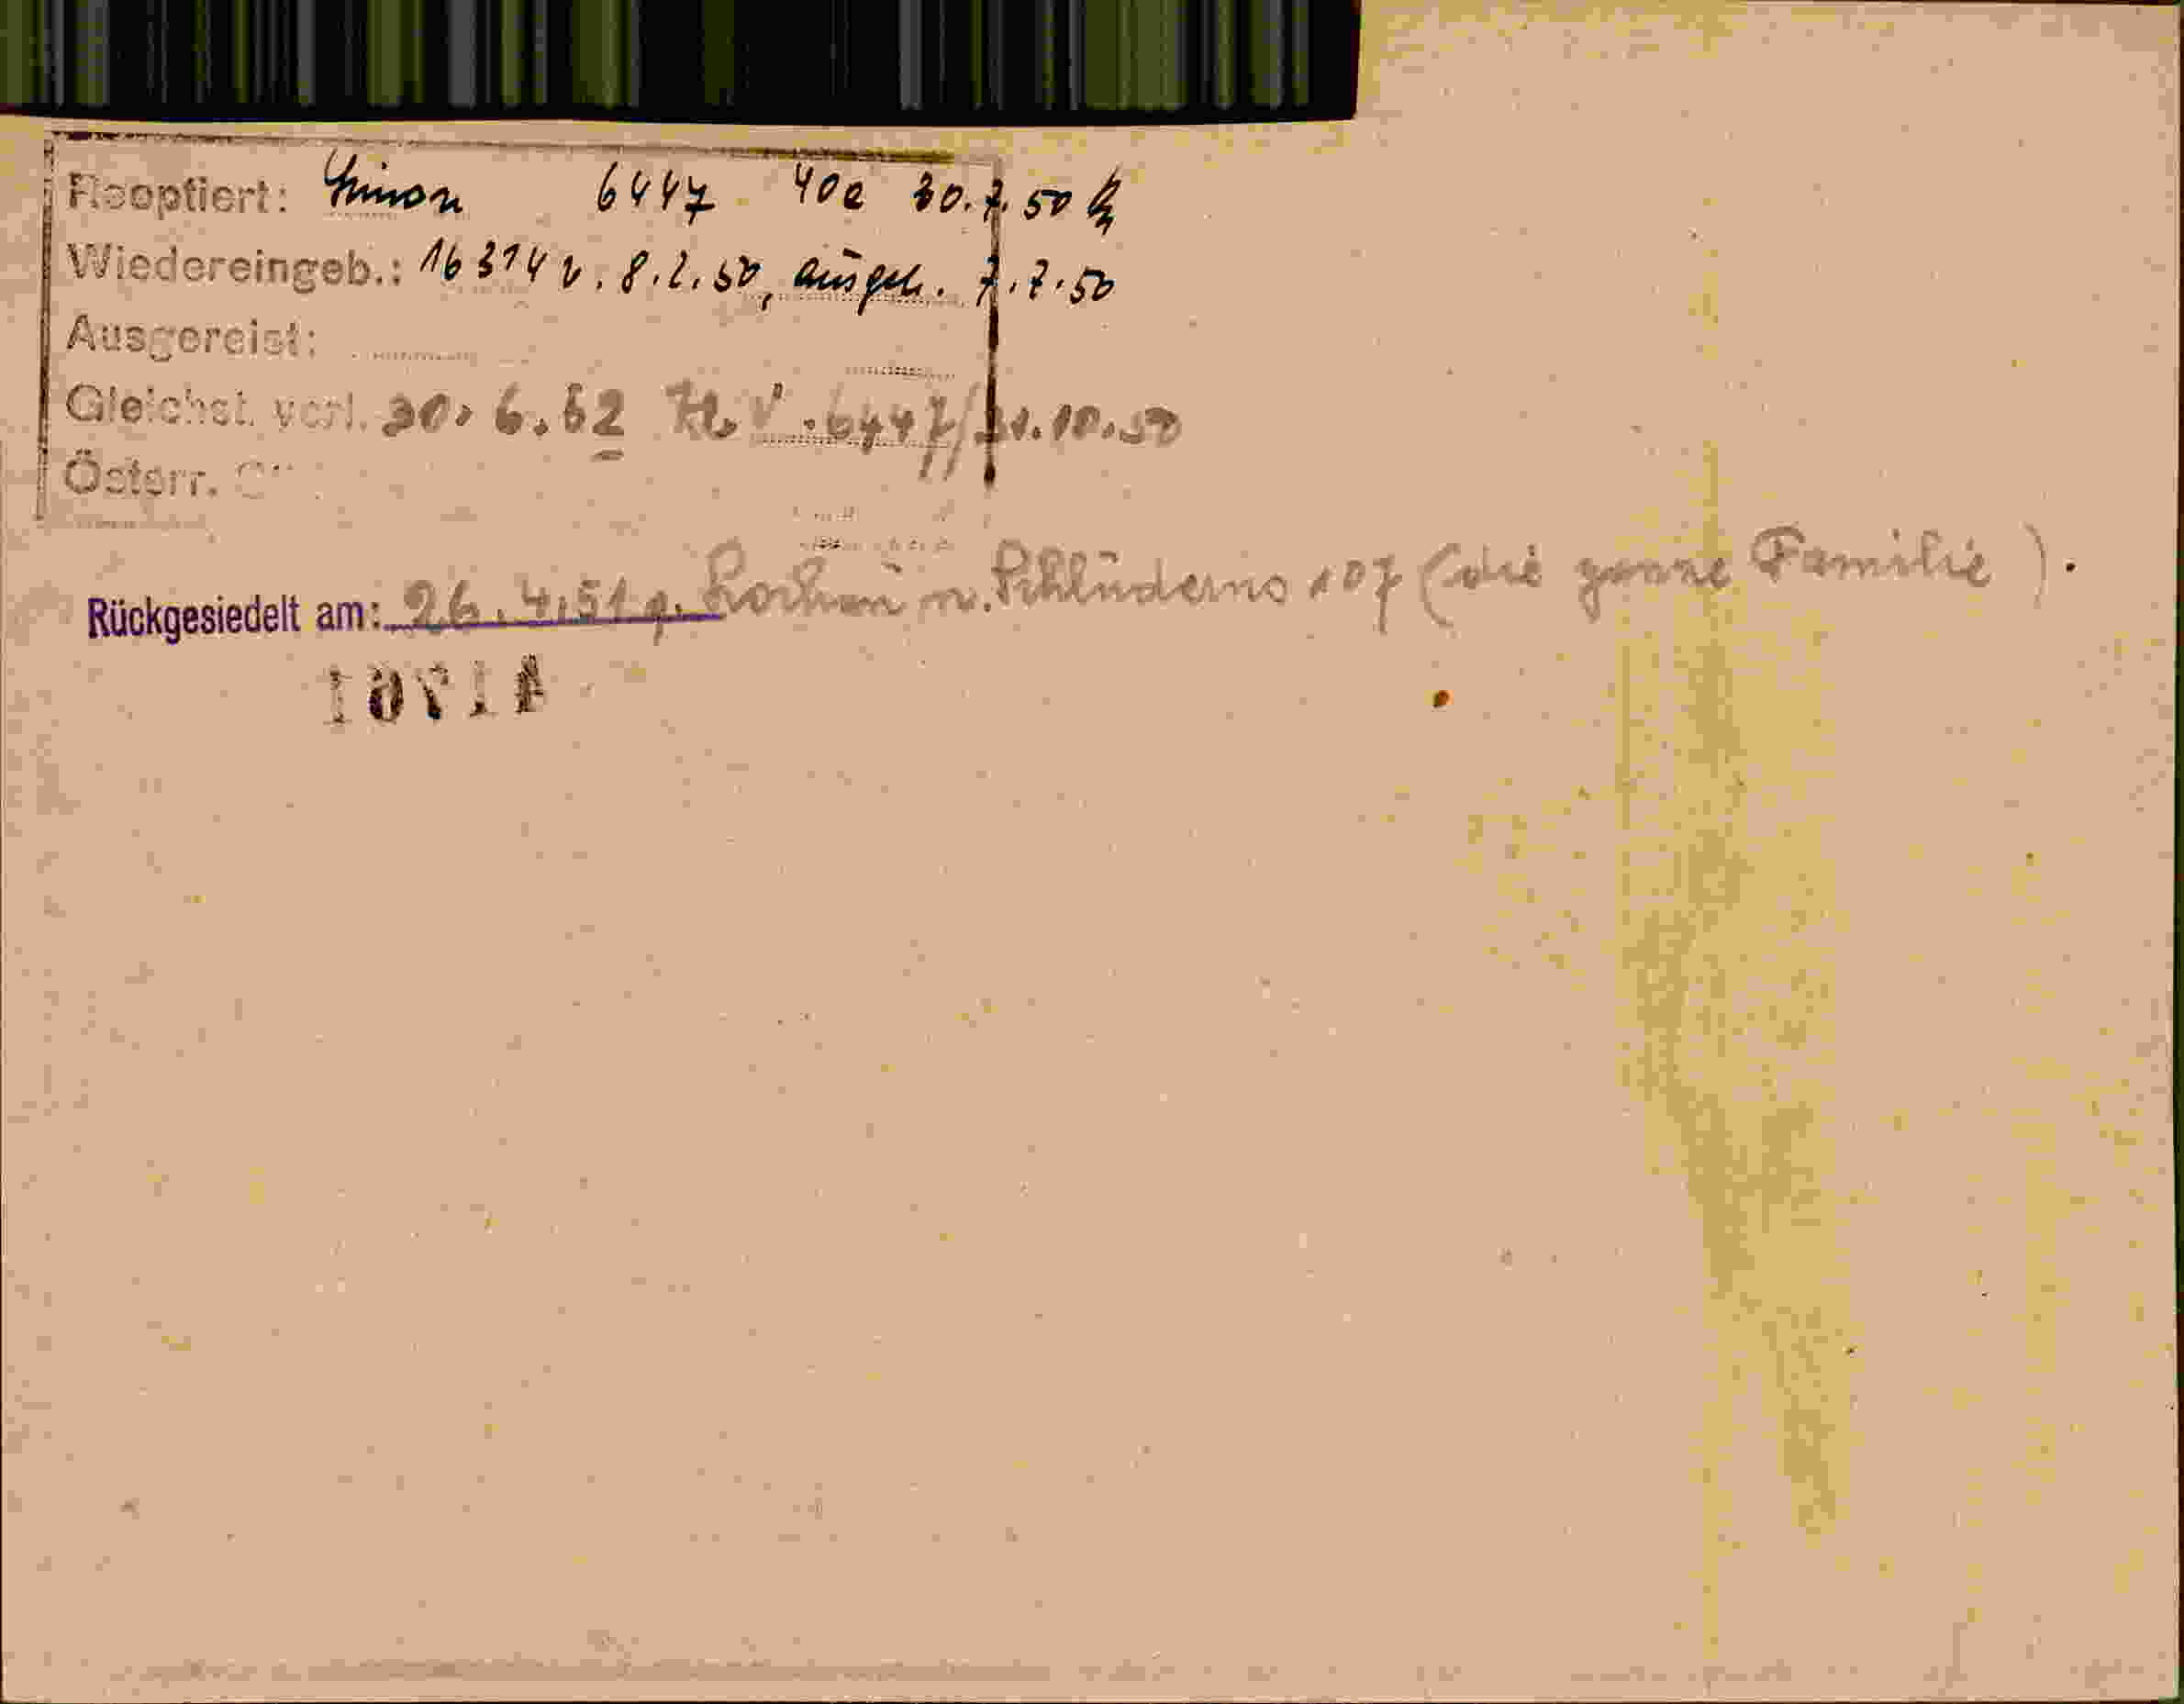 Reoptiert: Simon 6447 40e 30.7.50
Wiedereingeb.: 16314 v. 8.2.50, ausgeh. 7.7.50
Ausgereist:
Gleichst. verl. 30.6.52 Kl. V. 6447/31.10.50
Österr.
Rückgesiedelt am: 26.4.51 n. Schluderns 107 (die ganze Familie).